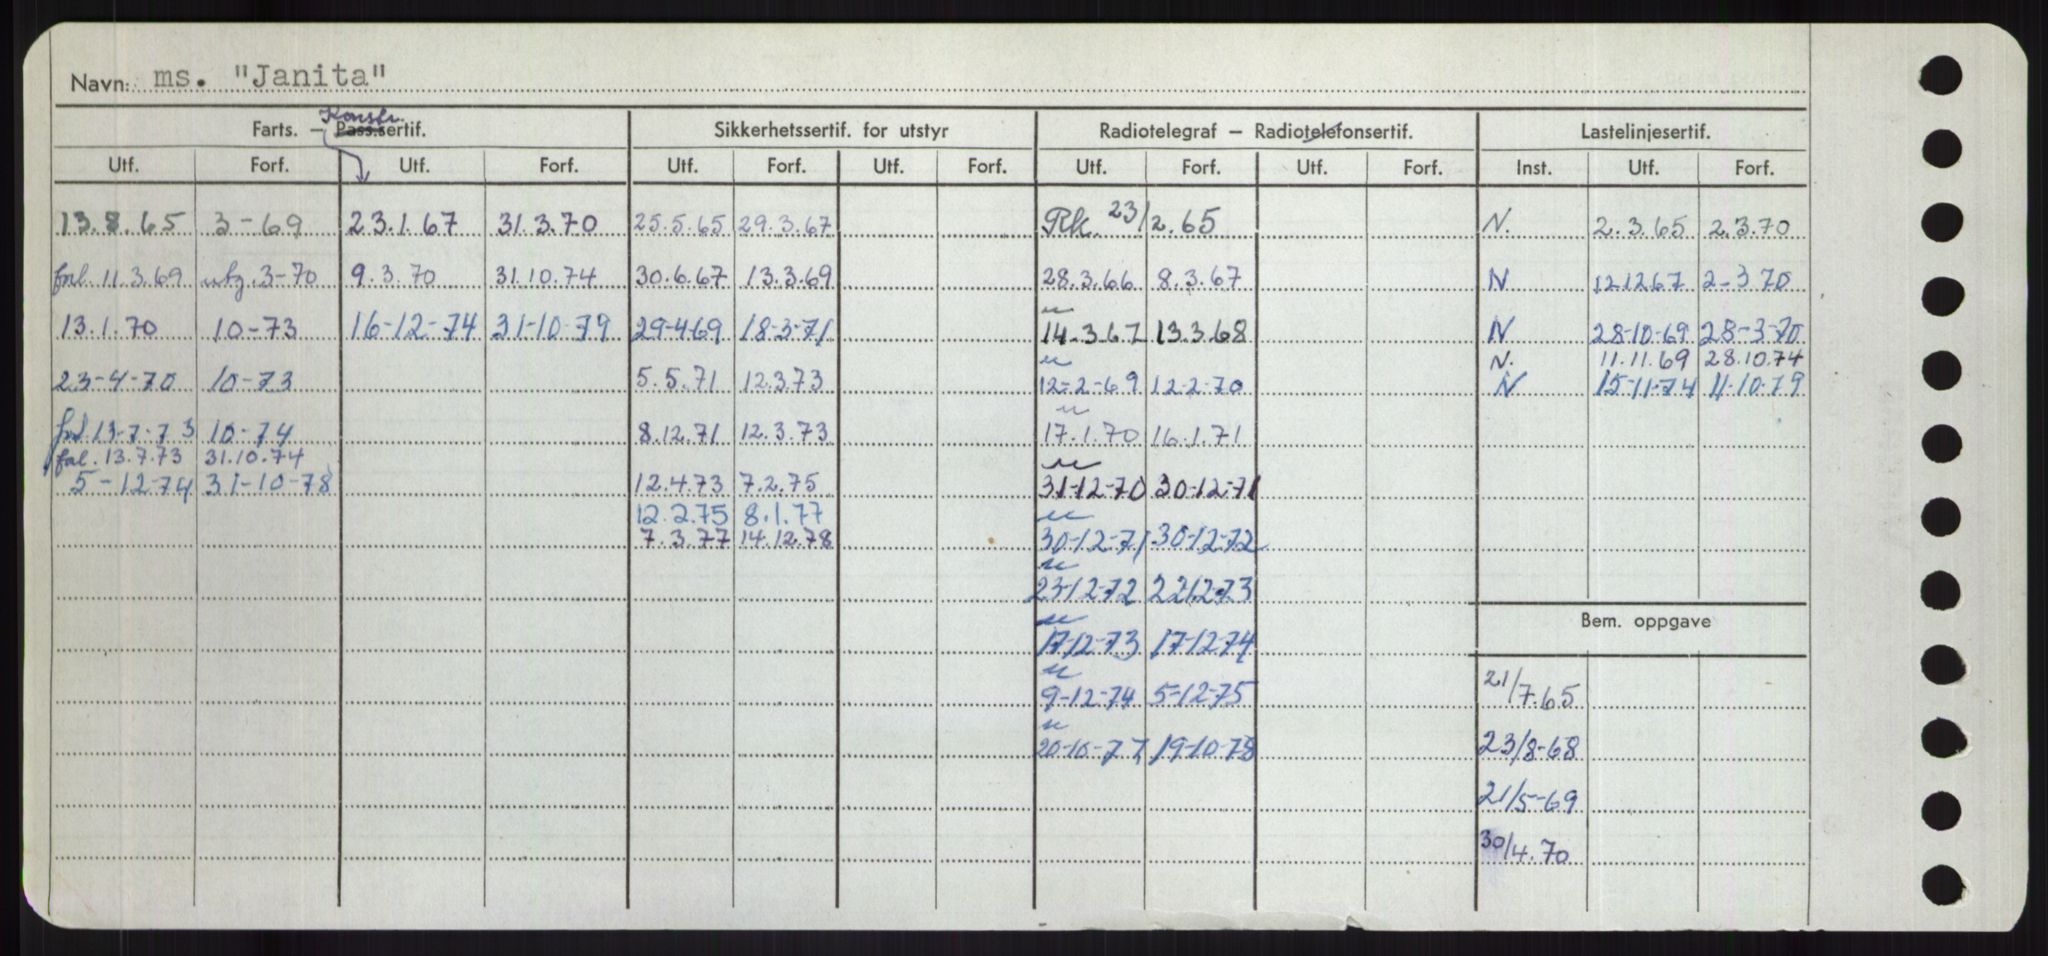 Navn: ms. "Janita"
Konstr.
Farts. – Pass.sertif. Sikkerhetssertif. for utstyr Radiotelegraf – Radiotelefonsertif. Lastelinjesertif.
Utf. Forf. Utf. Forf. Utf. Forf. Utf. Forf. Utf. Forf. Utf. Forf. Inst. Utf. Forf.
13.8.65 3-69 23.1.67 31.3.70 25.5.65 29.3.67 Rk. 23/2.65 N. 2.3.65 2.3.70
11.3.69 3-70 9.3.70 31.10.74 30.6.67 13.3.69 28.3.66 8.3.67 N 12.12.67 2-3.70
13.1.70 10-73 16-12-74 31-10-79 29-4-69 18-3-71 14.3.67 13.3.68 N 28-10-69 28-3-70
N. 11.11.69 28.10.74
23-4-70 10-73 5.5.71 12.3.73 12-2-69 12-2-70 N 15-11-74 11-10-79
13-7-73 10-74 8.12.71 12.3.73 17.1.70 16.1.71
13.7.73 31.10.74
5-12-74 31-10-78 12.4.73 7.2.75 31-12-70 30-12-71
12.2.75 8.1.77
7.3.77 14.12.78 30-12-71 30-12-72
23-12-72 22.12-73
Bem. oppgave
17-12-73 17-12-74
9-12-74 5-12-75 21/7.65
20-10-77 19-10-78 23/8-68
21/5-69
30/4.70